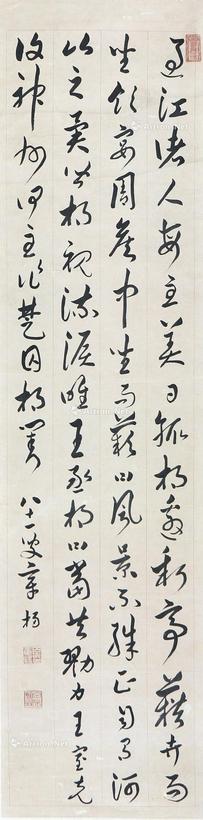 過江諸人每至美日輒相邀新亭藉卉而
坐飲宴周侯中坐而歎曰風景不殊正自有河
山之異皆相視流淚唯王丞相曰當共勠力王室克
復神州何至作楚囚相對 八十一叟章梫